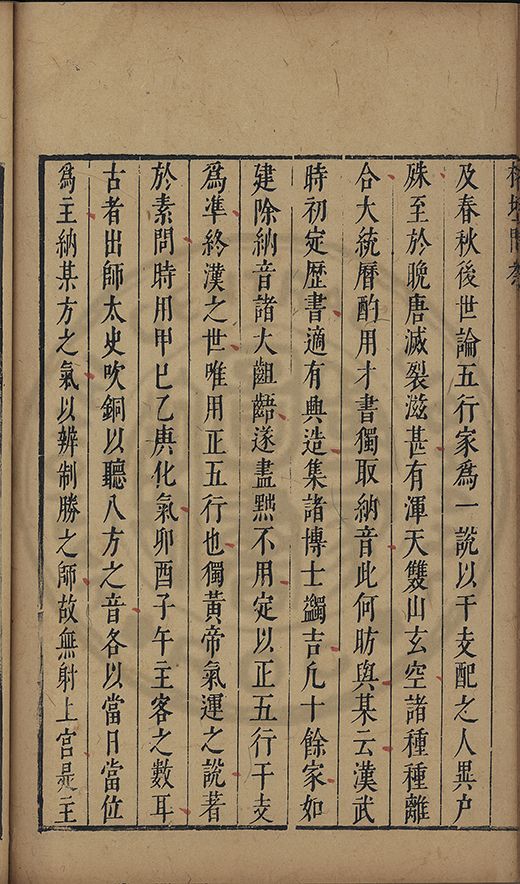 及春秋後世論五行家為一說以干支配之人異户
殊至於晚唐滅裂滋甚有渾天雙山玄空諸種種離
合大統曆酌用才書獨取納音此何昉與某云漢武
時初定歷書適有興造集諸博士蠲吉凡十餘家如
建除納音諸大齟齬遂盡㸃不用定以正五行干支
為準終漢之世唯用正五行也獨黃帝氣運之說著
於素問時用甲巳乙庚化氣卯酉子午主客之數耳
古者出師太史吹銅以聽八方之音各以當日當位
為主納某方之氣以辨制勝之師故無射上宮是主